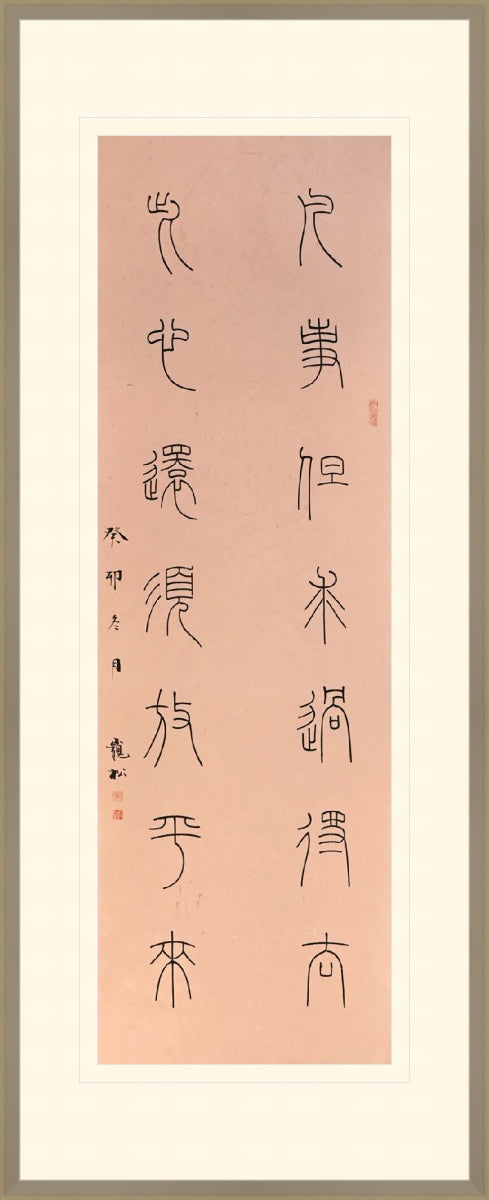 凡事但求過得去
此心還須放平來
癸卯冬月 松